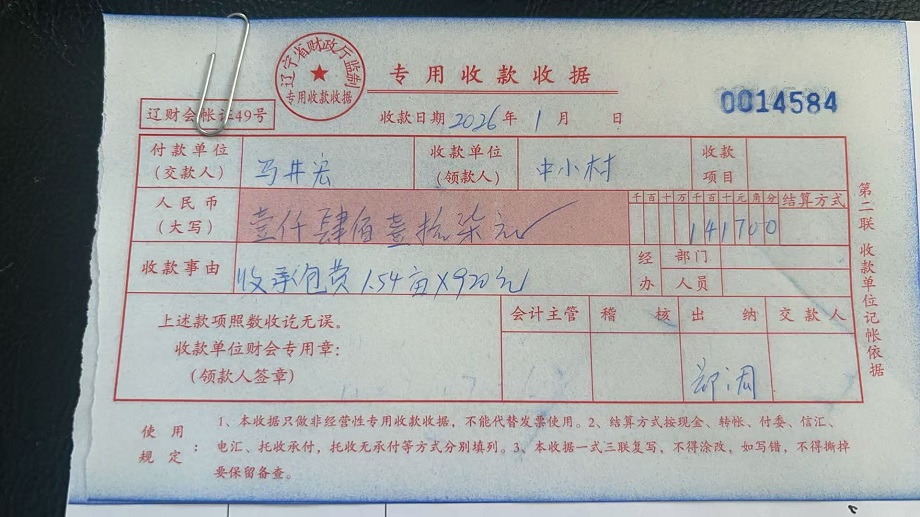 辽宁省财政厅监制
专用收款收据
专用收款收据
0014584
辽财会帐证49号
收款日期 2026 年 1 月 日
付款单位(交款人) 马井宏 收款单位(领款人) 中小村 收款项目
人民币(大写) 壹仟肆佰壹拾柒元 千百十万千百十元角分 141700 结算方式
收款事由 收承包费 1.54亩×920元 经办 部门 人员
上述款项照数收讫无误。 会计主管 稽核 出纳 交款人
收款单位财会专用章:
(领款人签章)
第二联 收款单位记帐依据
使用规定: 1、本收据只做非经营性专用收款收据,不能代替发票使用。2、结算方式按现金、转帐、付委、信汇、
电汇、托收承付,托收无承付等方式分别填列。3、本收据一式三联复写,不得涂改,如写错,不得撕掉
要保留备查。